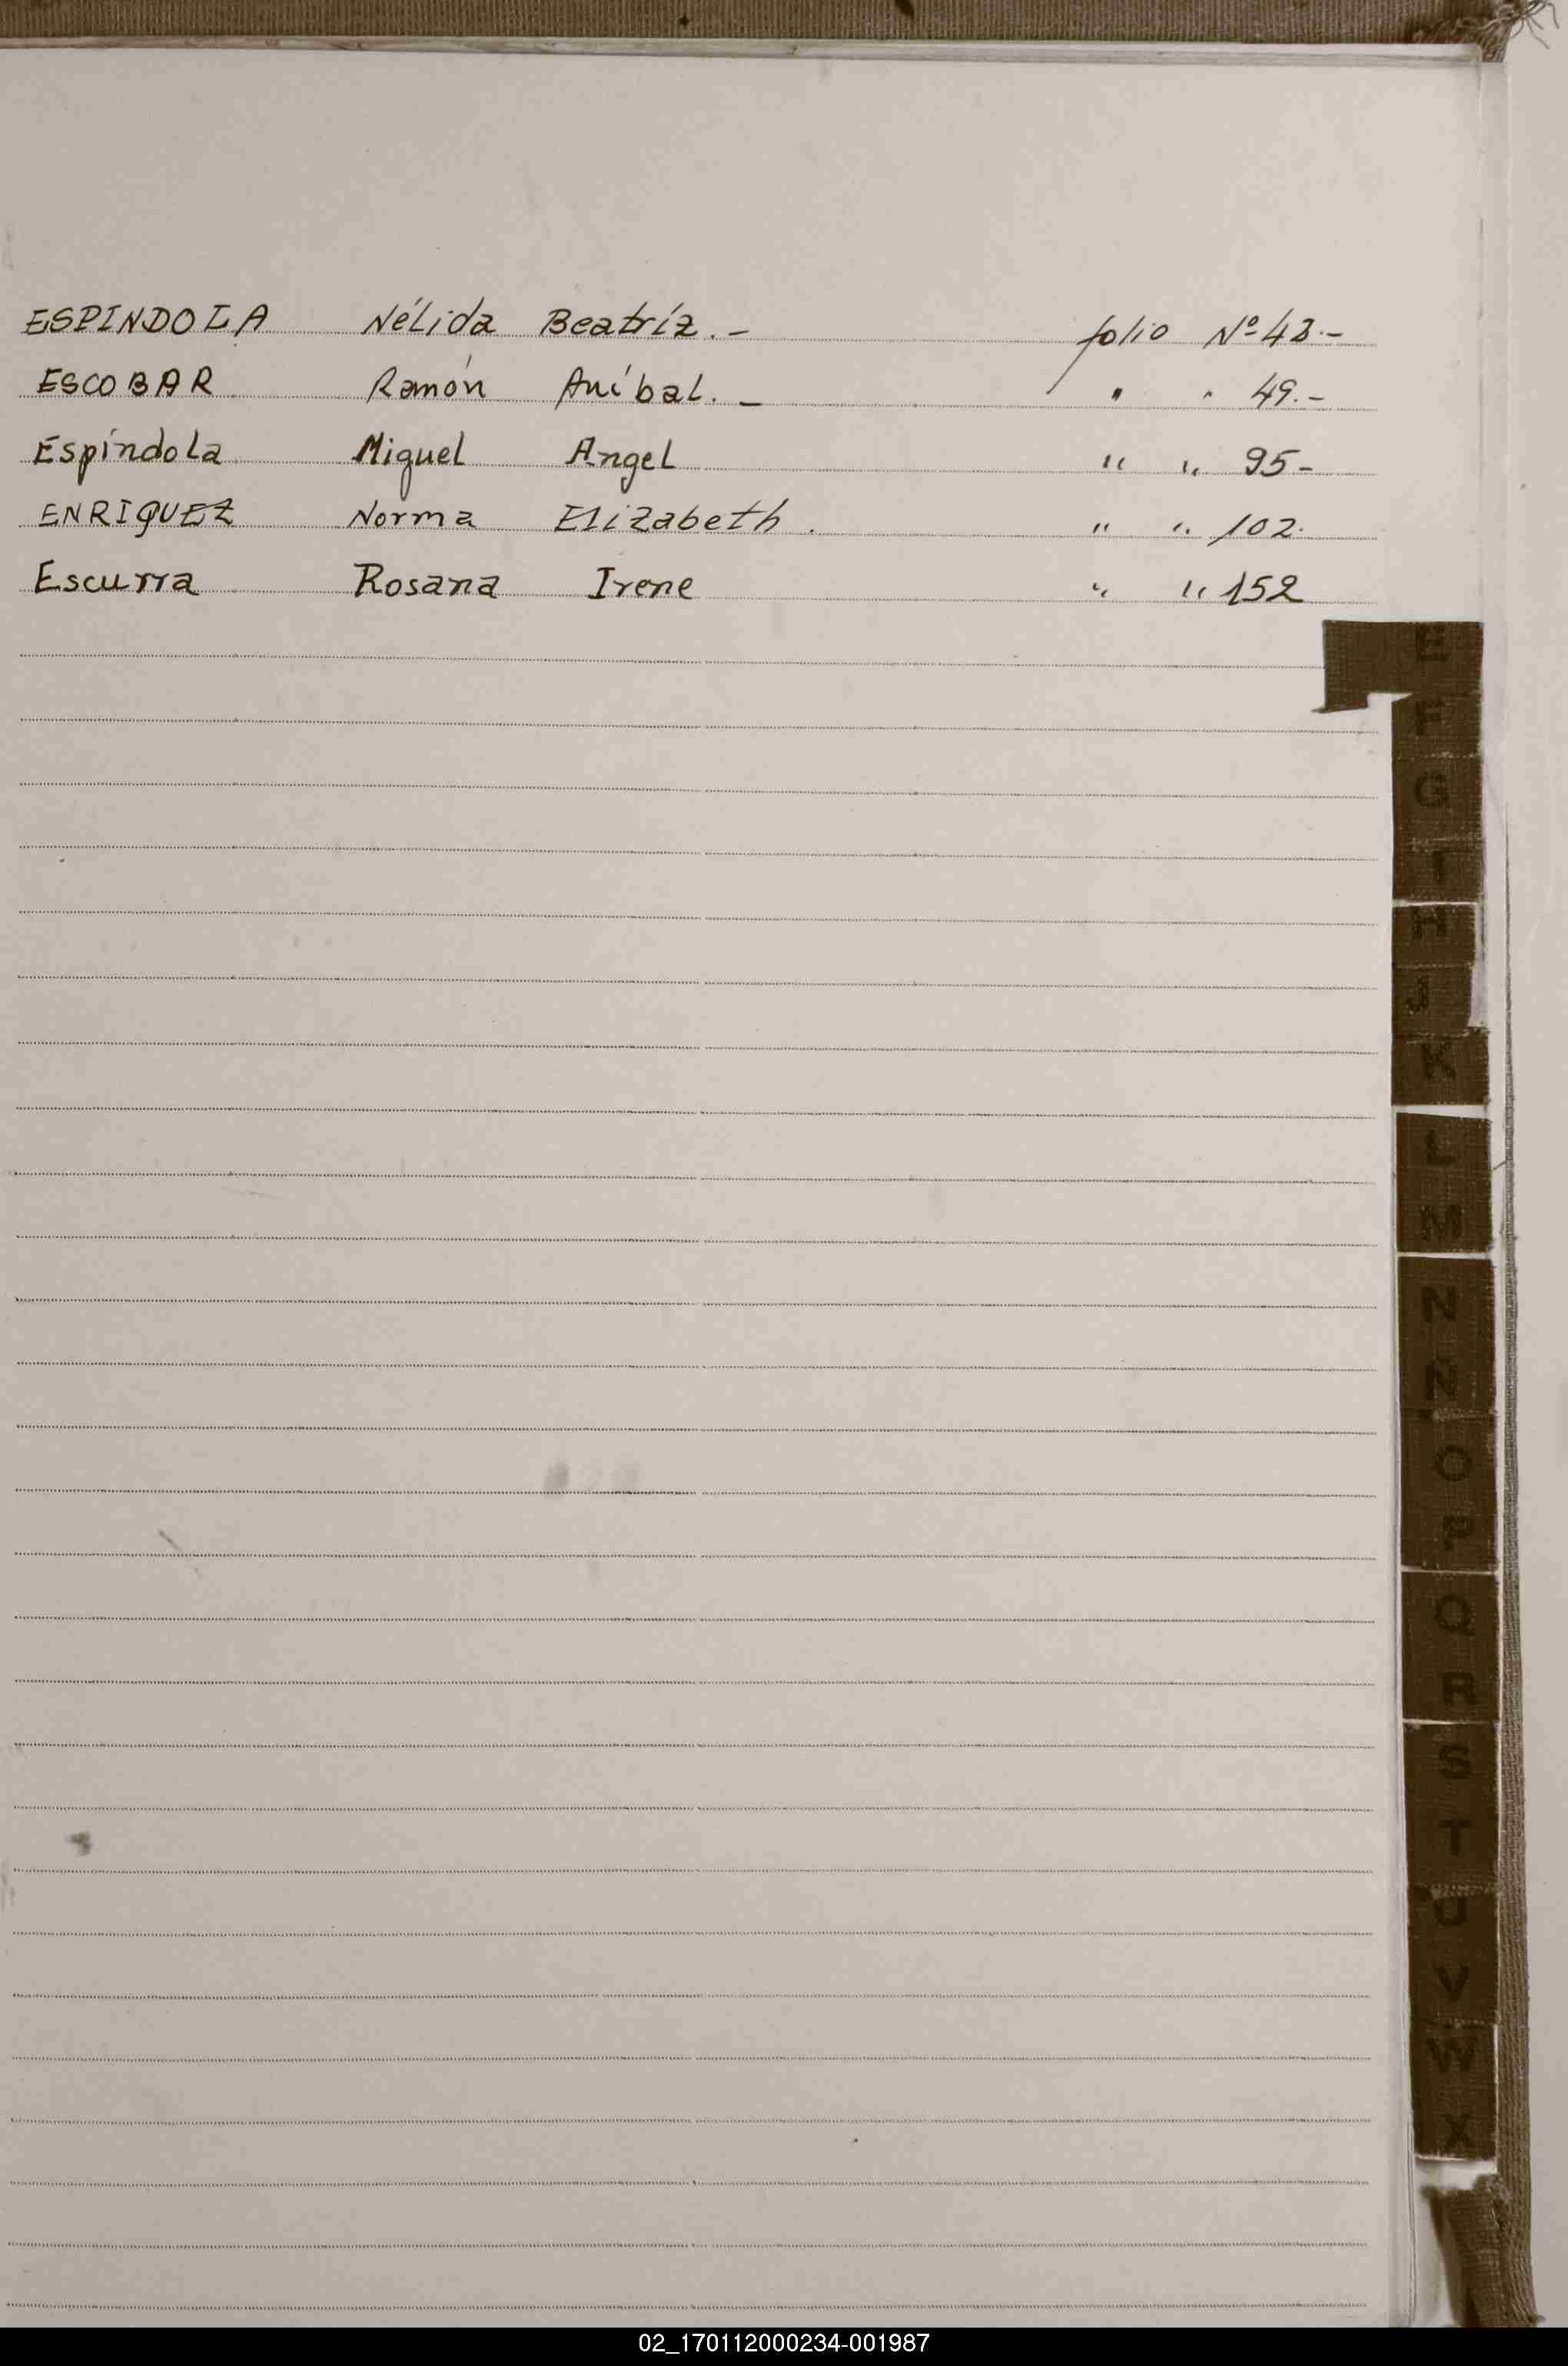 ESPINDOLA Nélida Beatríz.- folio Nº 43.-
ESCOBAR Ramón Aníbal.- " " 49.-
Espíndola Miguel Angel " " 95-
ENRIQUEZ Norma Elizabeth. " " 102.
Escurra Rosana Irene " " 152
E
F
G
I
H
J
K
L
M
N
Ñ
O
P
Q
R
S
T
U
V
W
X
02_170112000234-001987